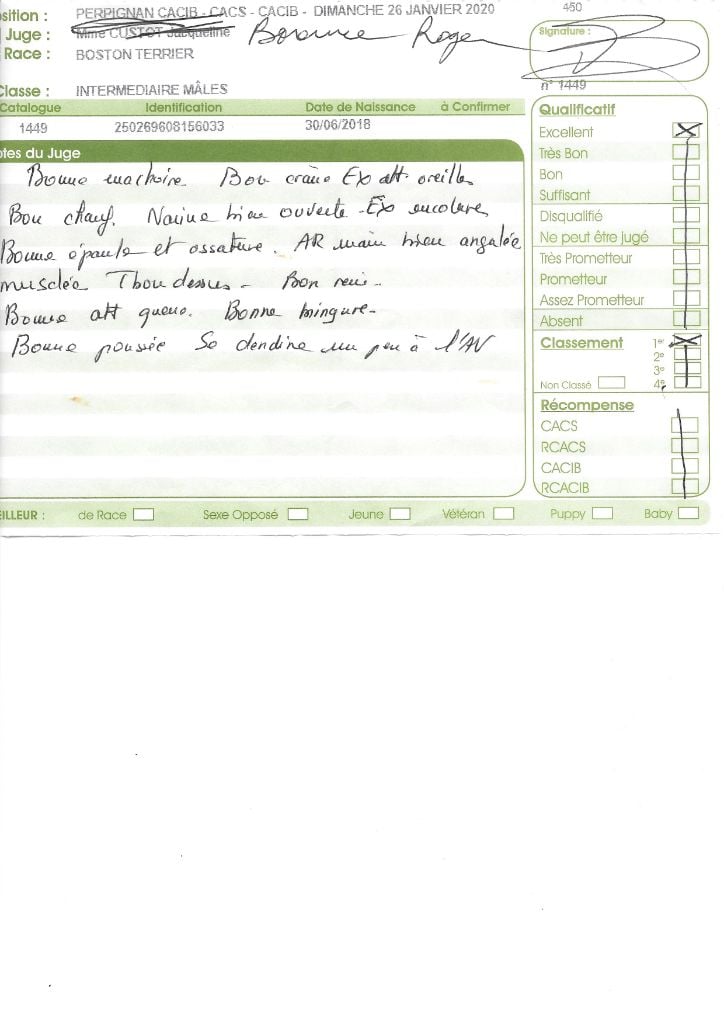 osition : PERPIGNAN CACIB - CACS - CACIB - DIMANCHE 26 JANVIER 2020 450
Juge : Mme CUSTOT Jacqueline Roger
Signature :
Race : BOSTON TERRIER
Classe : INTERMEDIAIRE MÂLES
n° 1449
Catalogue Identification Date de Naissance à Confirmer
1449 250269608156033 30/06/2018
otes du Juge
Bonne machoire Bon crâne Ex att. oreilles
Bon chanf. Narine bien ouverte - Ex encolure
Bonne épaule et ossature. AR main bien angulée
musclée T bon dessus - Bon rein -
Bonne att queue. Bonne
Bonne poussée Se dandine un peu à l'AV
Qualificatif
Excellent
Très Bon
Bon
Suffisant
Disqualifié
Ne peut être jugé
Très Prometteur
Prometteur
Assez Prometteur
Absent
Classement 1er
2e
3e
Non Classé 4e
Récompense
CACS
RCACS
CACIB
RCACIB
EILLEUR : de Race Sexe Opposé Jeune Vétéran Puppy Baby